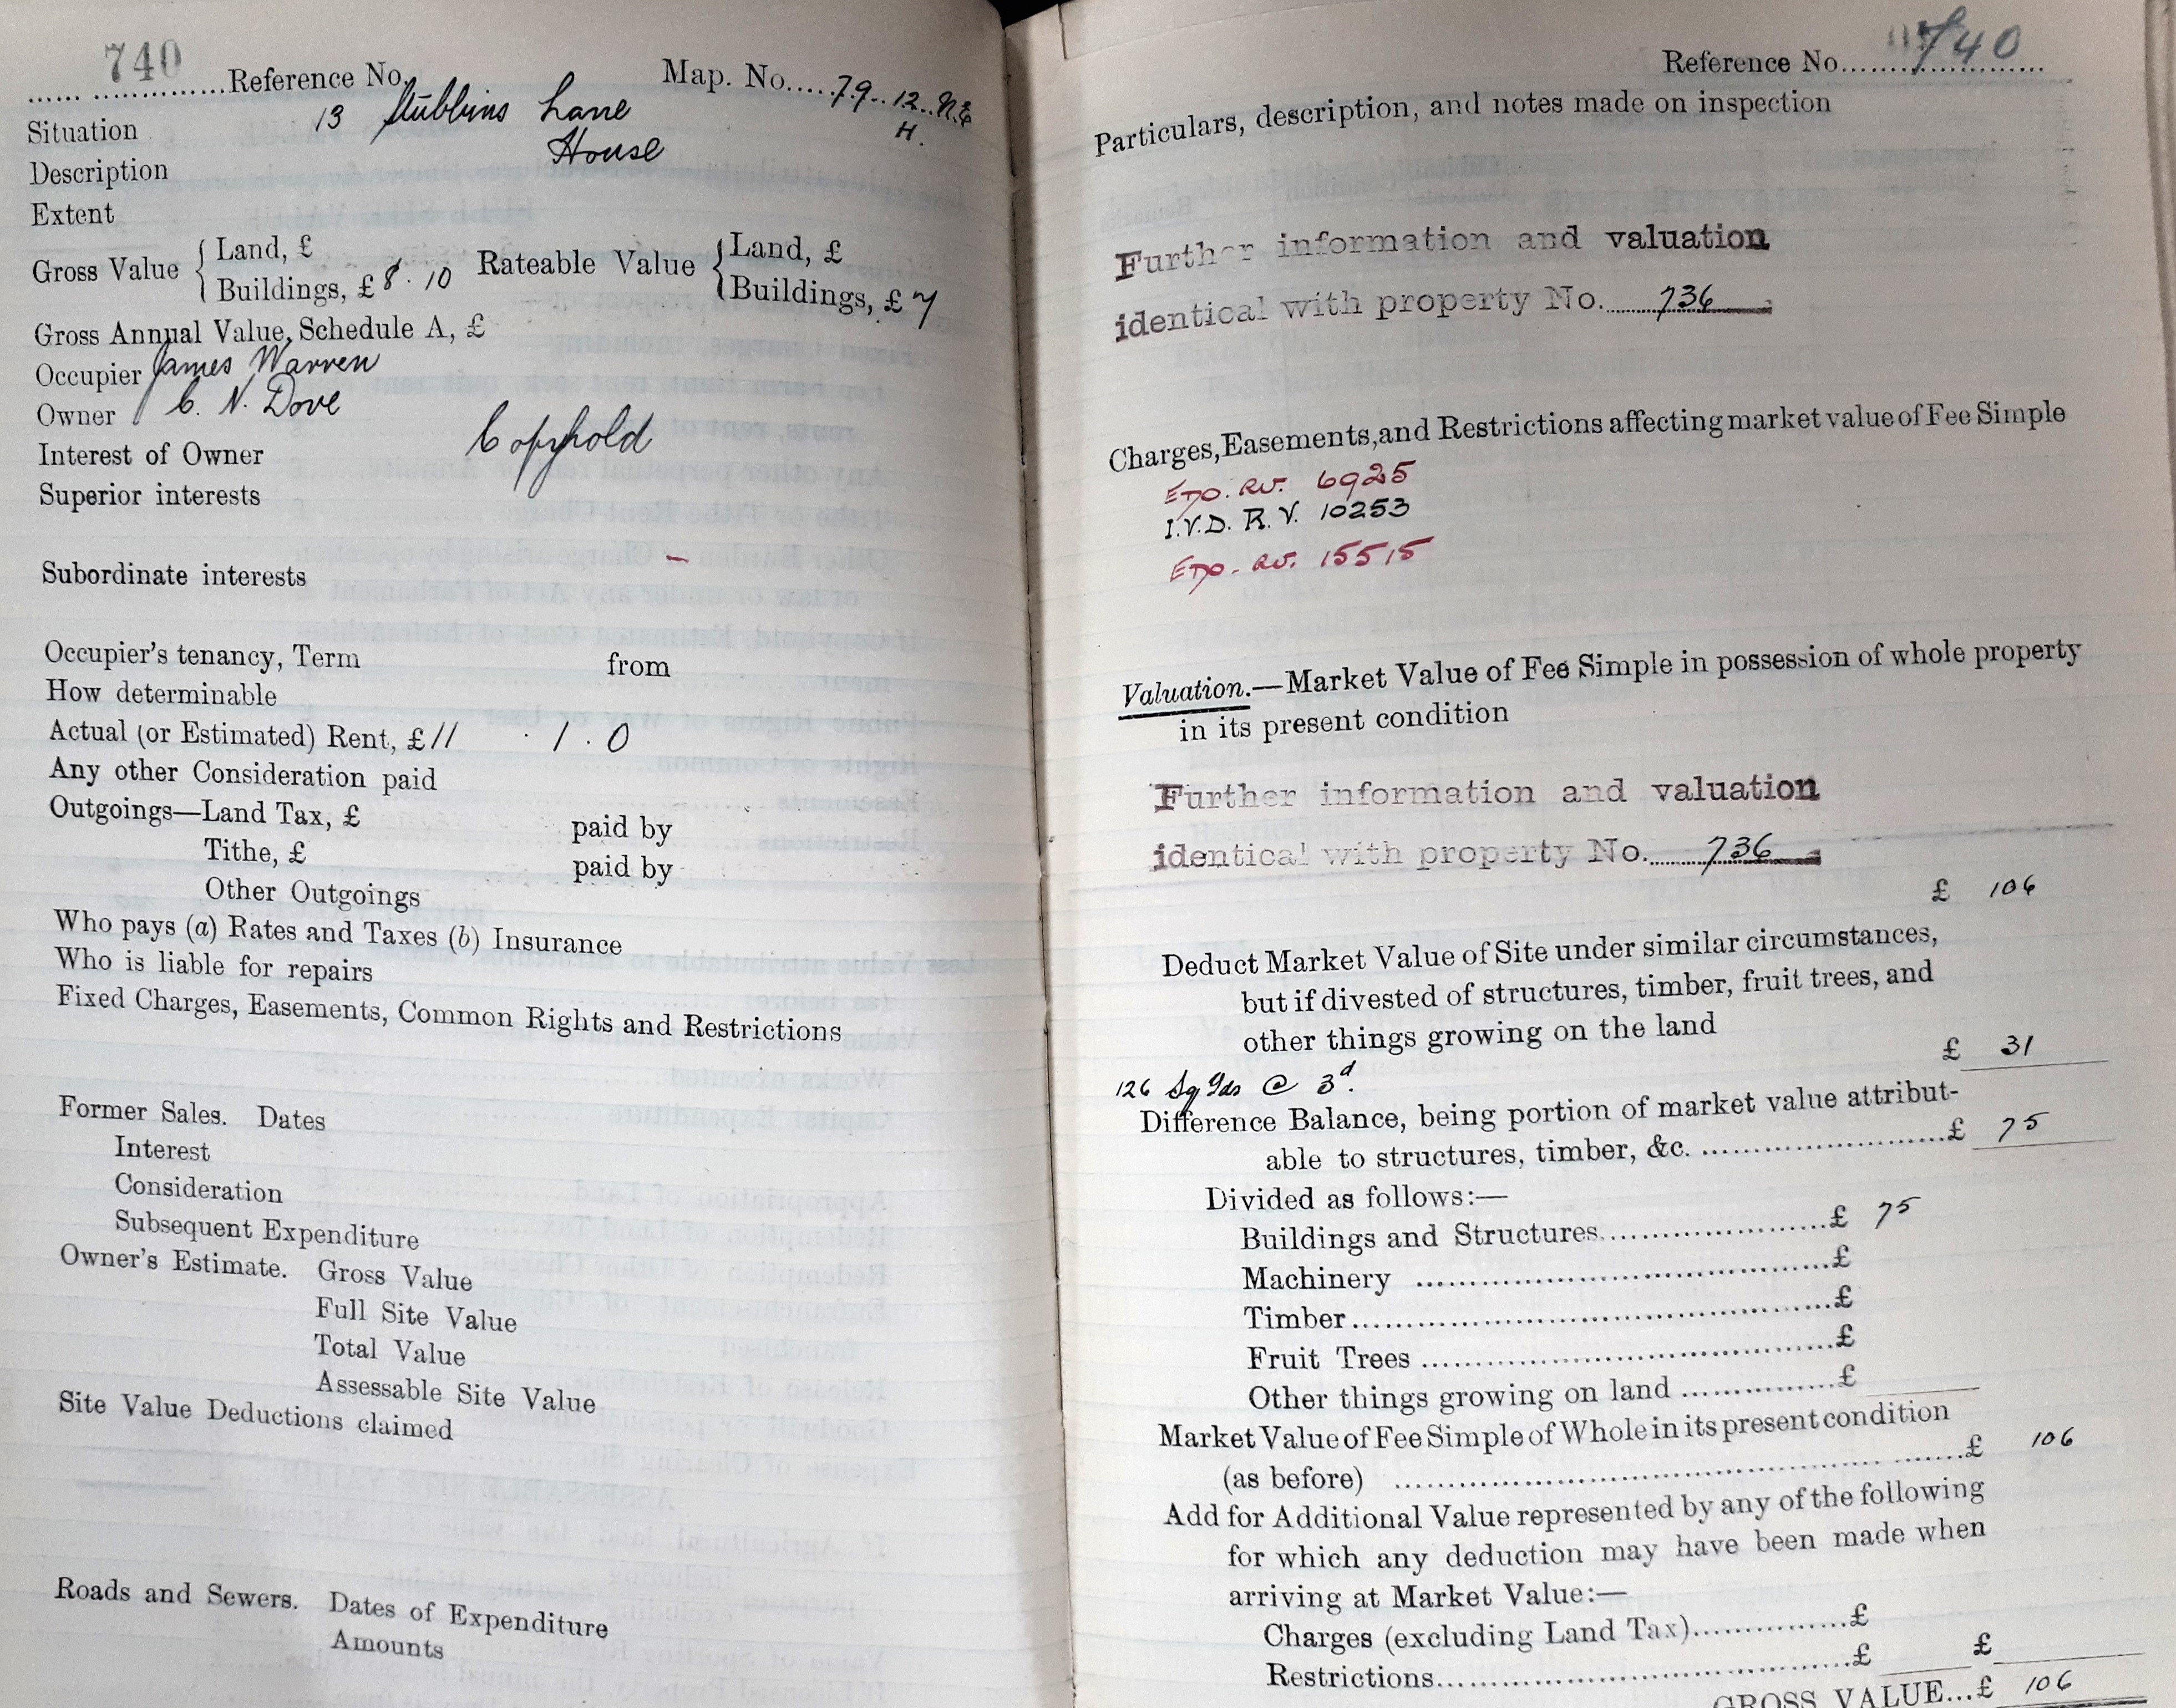 740
Reference No. Map. No. 79. 12. N.E
H.
Situation 13 Stubbins Lane
Description House
Extent
Gross Value { Land, £ Rateable Value { Land, £
Buildings, £ 8. 10 Buildings, £ 7
Gross Annual Value, Schedule A, £
Occupier James Warren
Owner C. N. Dove
Interest of Owner Copyhold
Superior interests
Subordinate interests
Occupier's tenancy, Term from
How determinable
Actual (or Estimated) Rent, £ 11 . 1 . 0
Any other Consideration paid
Outgoings—Land Tax, £ paid by
Tithe, £ paid by
Other Outgoings
Who pays (a) Rates and Taxes (b) Insurance
Who is liable for repairs
Fixed Charges, Easements, Common Rights and Restrictions
Former Sales. Dates
Interest
Consideration
Subsequent Expenditure
Owner's Estimate. Gross Value
Full Site Value
Total Value
Assessable Site Value
Site Value Deductions claimed
Roads and Sewers. Dates of Expenditure
Amounts
Reference No. 740
Particulars, description, and notes made on inspection
Further information and valuation
identical with property No. 736
Charges, Easements, and Restrictions affecting market value of Fee Simple
RV. 6925
I.V.D. R.V. 10253
RV. 15515
Valuation.—Market Value of Fee Simple in possession of whole property
in its present condition
Further information and valuation
identical with property No. 736
£ 106
Deduct Market Value of Site under similar circumstances,
but if divested of structures, timber, fruit trees, and
other things growing on the land
£ 31
126 Sq Yds @ 3d.
Difference Balance, being portion of market value attribut-
able to structures, timber, &c. £ 75
Divided as follows:—
Buildings and Structures £ 75
Machinery £
Timber £
Fruit Trees £
Other things growing on land £
Market Value of Fee Simple of Whole in its present condition
(as before) £ 106
Add for Additional Value represented by any of the following
for which any deduction may have been made when
arriving at Market Value:—
Charges (excluding Land Tax) £
Restrictions £ £
GROSS VALUE...£ 106